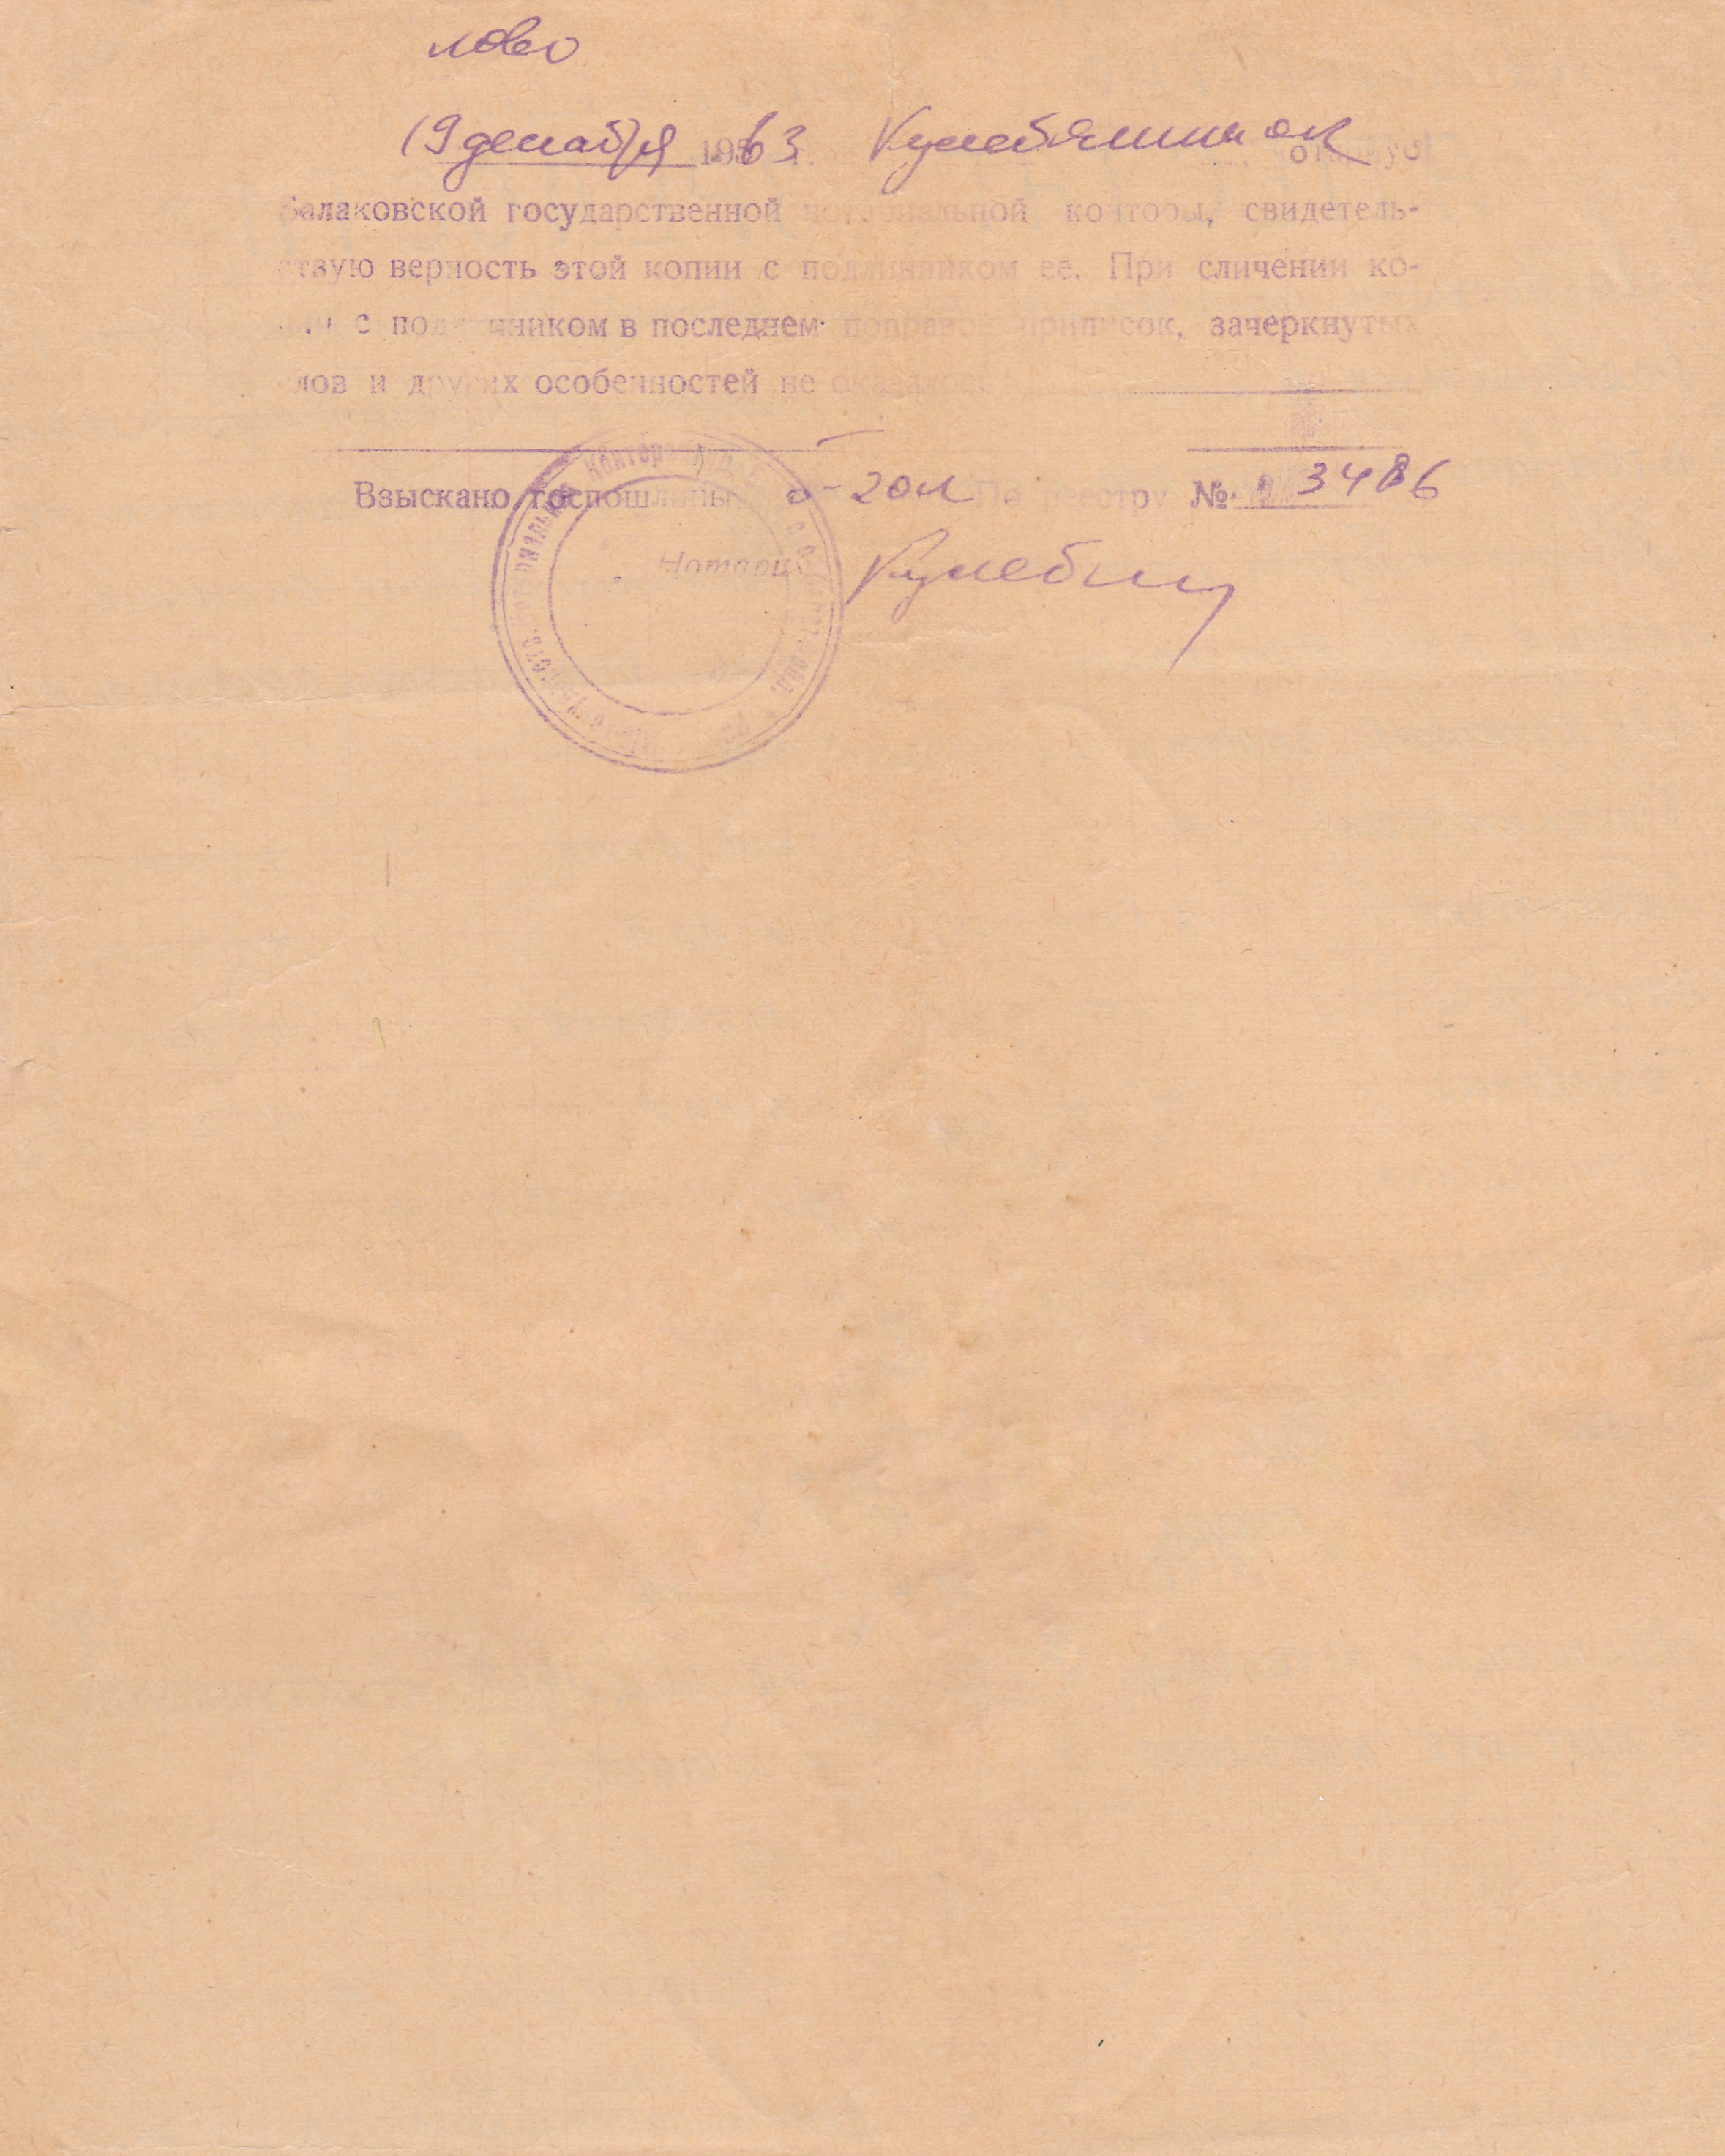 19 декабря 1963 г.
Балаковской государственной нотариальной конторы, свидетель-
ствую верность этой копии с подлинником ее. При сличении ко-
пии с подлинником в последнем поправок приписок, зачеркнутых
слов и других особенностей не оказалось
Взыскано госпошлины 0-20к По реестру № 3486
Нотариус